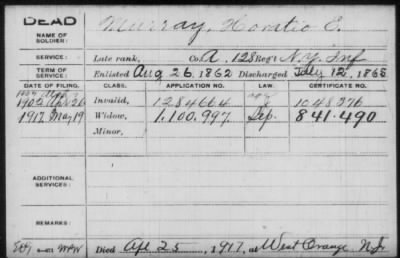 DEAD
NAME OF SOLDIER: Murray, Horatio E.
SERVICE: Late rank, Co. A, 128 Reg't N.Y. Inf
TERM OF SERVICE: Enlisted Aug 26, 1862 Discharged July 12, 1865
DATE OF FILING. CLASS. APPLICATION NO. LAW. CERTIFICATE NO.
1902 Apr 26 Invalid, 1284664 1048276
1917 May 19 Widow, 1,100,997 Sep. 841.490
Minor,
ADDITIONAL SERVICES:
REMARKS:
Died Apl 25, 1917, at West Orange N.J.